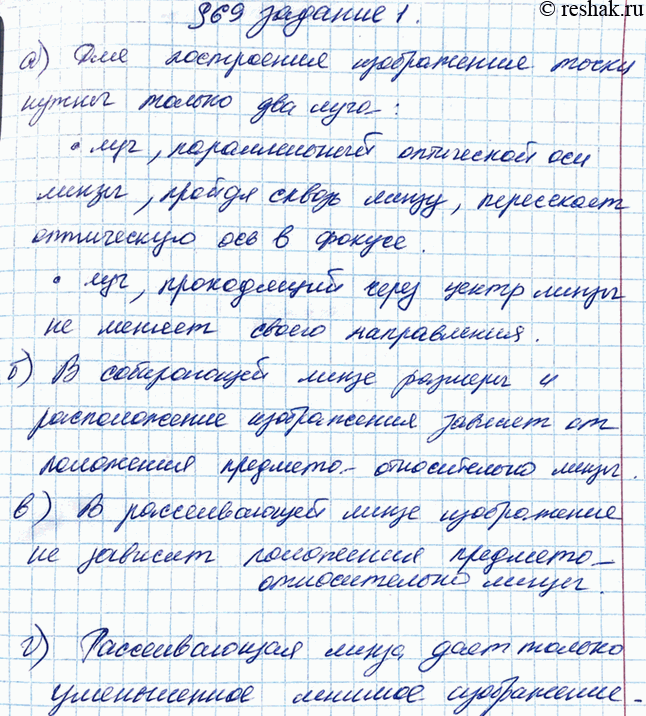 © reshak.ru
§69 задание 1.
а) Для построения изображения точки
нужны только два луча:
• луч, параллельный оптической оси
линзы, пройдя сквозь линзу, пересекает
оптическую ось в фокусе.
• луч, проходящий через центр линзы
не меняет своего направления.
б) В собирающей линзе размеры и
расположение изображения зависит от
положения предмета относительно линзы.
в) В рассеивающей линзе изображение
не зависит положения предмета
относительно линзы.
г) Рассеивающая линза дает только
уменьшенное мнимое изображение.